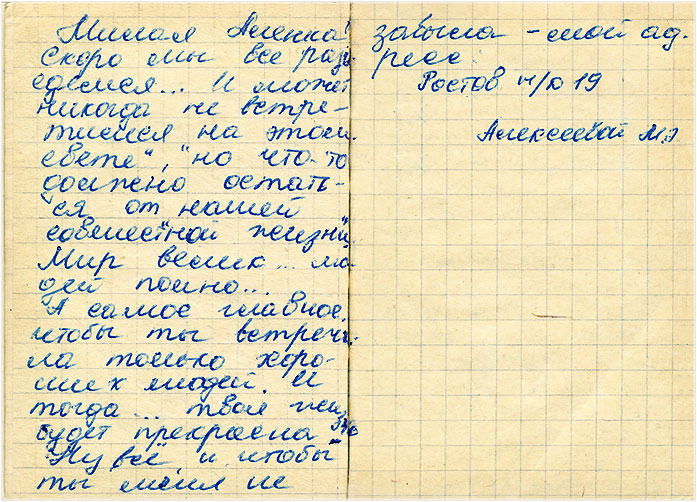 Милая Аленка!
Скоро мы все разъ
едемся... И может
никогда не встре-
тимся на этом
свете", "но что-то
должно остать-
ся от нашей
совместной жизни.
Мир велик... лю
дей полно...
А самое главное,
чтобы ты встречи
ла только хоро-
ших людей. И
тогда... твоя жиз
нь
будет прекрасна
Ну всё и чтобы
ты меня не
забыла - мой ад.
ресс
Ростов н/Д 19
Алексеевой М.